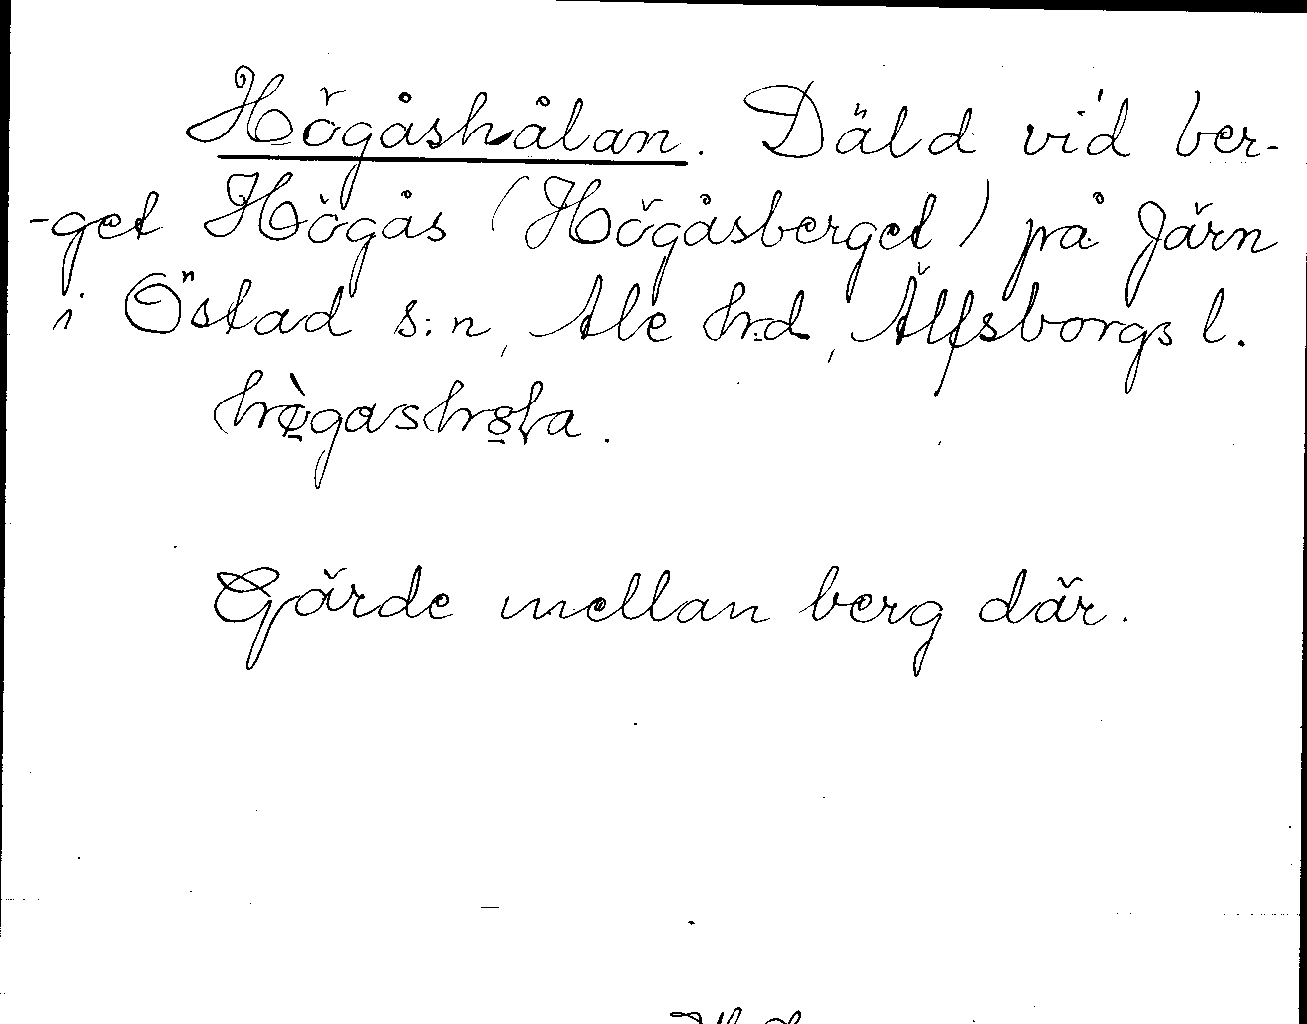 Högåshålan. Däld vid ber-
-get Högås (Högåsberget) på Järn
i Östad s:n, Ale hrd, Älfsborgs l.
Gärde mellan berg där.